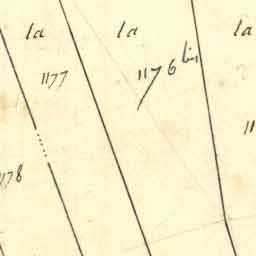 la
la
la
1177
1176 bis
11
1178